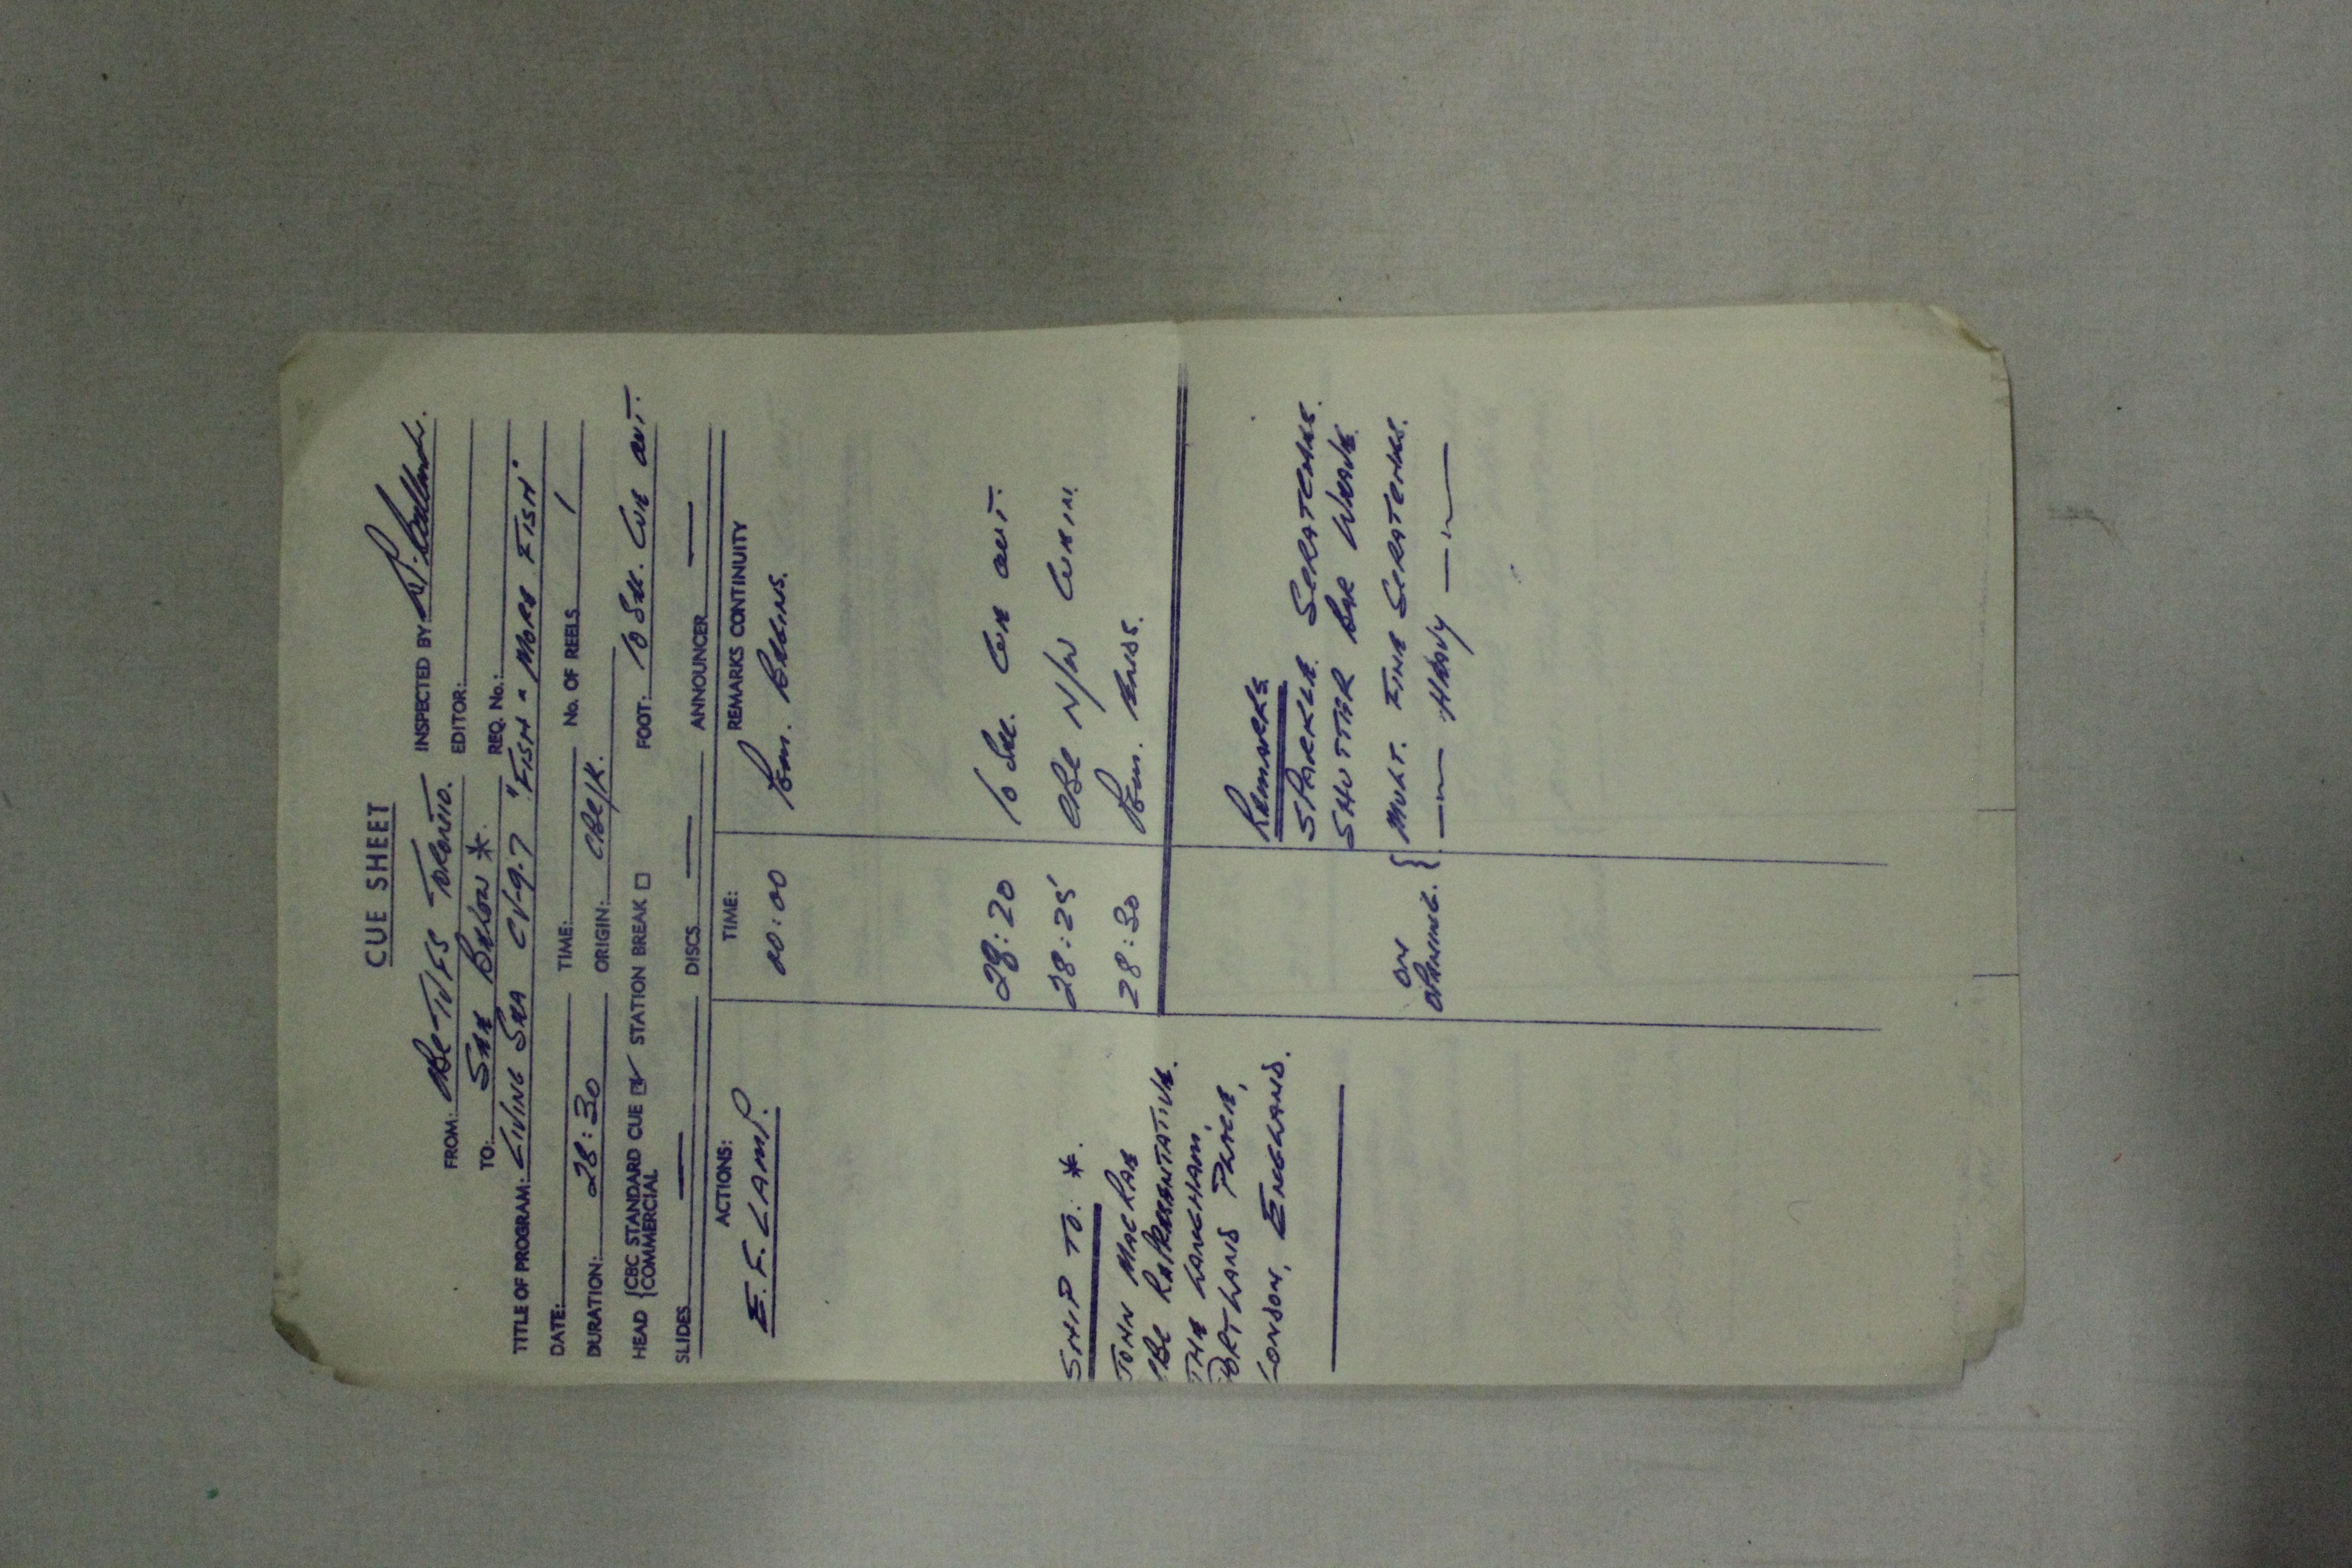 CUE SHEET
FROM: CBC-TVFS TORONTO. INSPECTED BY
TO: SEE BELOW *. EDITOR:
REQ. No.:
TITLE OF PROGRAM: LIVING SEA CV-9-7 "FISH & MORE FISH"
DATE: TIME: No. OF REELS 1
DURATION: 28:30 ORIGIN: CBC/K.
HEAD {CBC STANDARD CUE ☑ STATION BREAK ☐ FOOT: 10 SEC. CUE OUT.
{COMMERCIAL
SLIDES — DISCS — ANNOUNCER —
ACTIONS: TIME: REMARKS CONTINUITY
E.F. LAMP. 00:00 Pgm. BEGINS.
28:20 10 Sec. CUE OUT.
28:25 CBC N/W CUE IN.
28:30 Pgm. ENDS.
SHIP TO. *.
JOHN MACRAE
CBC REPRESENTATIVE.
THE LANGHAM,
PORTLAND PLACE,
LONDON, ENGLAND.
REMARKS.
SPARKLE SCRATCHES.
SHUTTER BAR WEAVE.
ON OPENING. { MULT. FINE SCRATCHES.
—"— HEAVY —"—